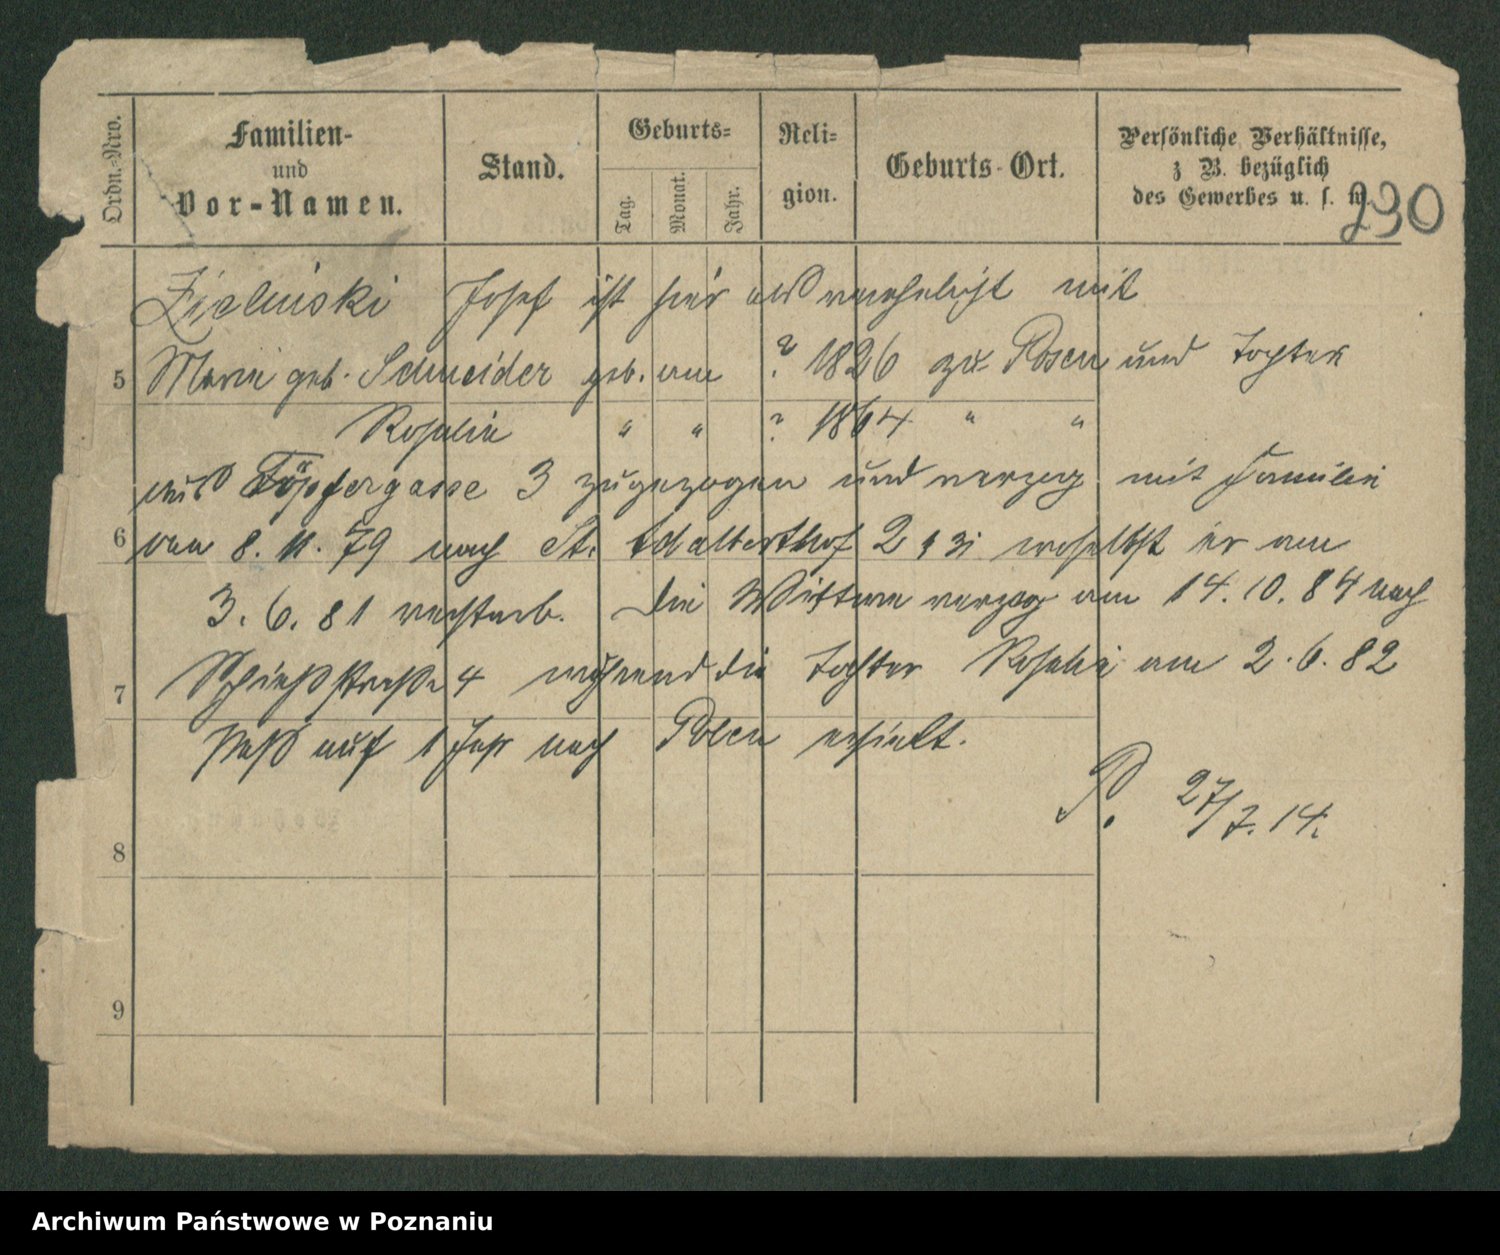 Ordn.-Nro.
Familien-
und
Vor-Namen.
Stand.
Geburts-
Tag.
Monat.
Jahr.
Reli-
gion.
Geburts-Ort.
Persönliche Verhältnisse,
z B. bezüglich
des Gewerbes u. s. w.
230
Zielinski Josef ist hier als verehelicht mit
5 Marie geb. Schneider geb. am ? ? 1826 zu Posen und Tochter
Rosalie " " ? 1864 " "
aus Töpfergasse 3 zugezogen und verzog mit Familie
6 am 8. 11. 79 nach St. Adalberthof 2 woselbst er am
3. 6. 81 verstarb. Die Wittwe verzog am 14. 10. 84 nach
7 Schießstraße 4 während die Tochter Rosalie am 2. 6. 82
Paß auf 1 Jahr nach Polen erhielt.
P. 27/7. 14.
8
9
Archiwum Państwowe w Poznaniu